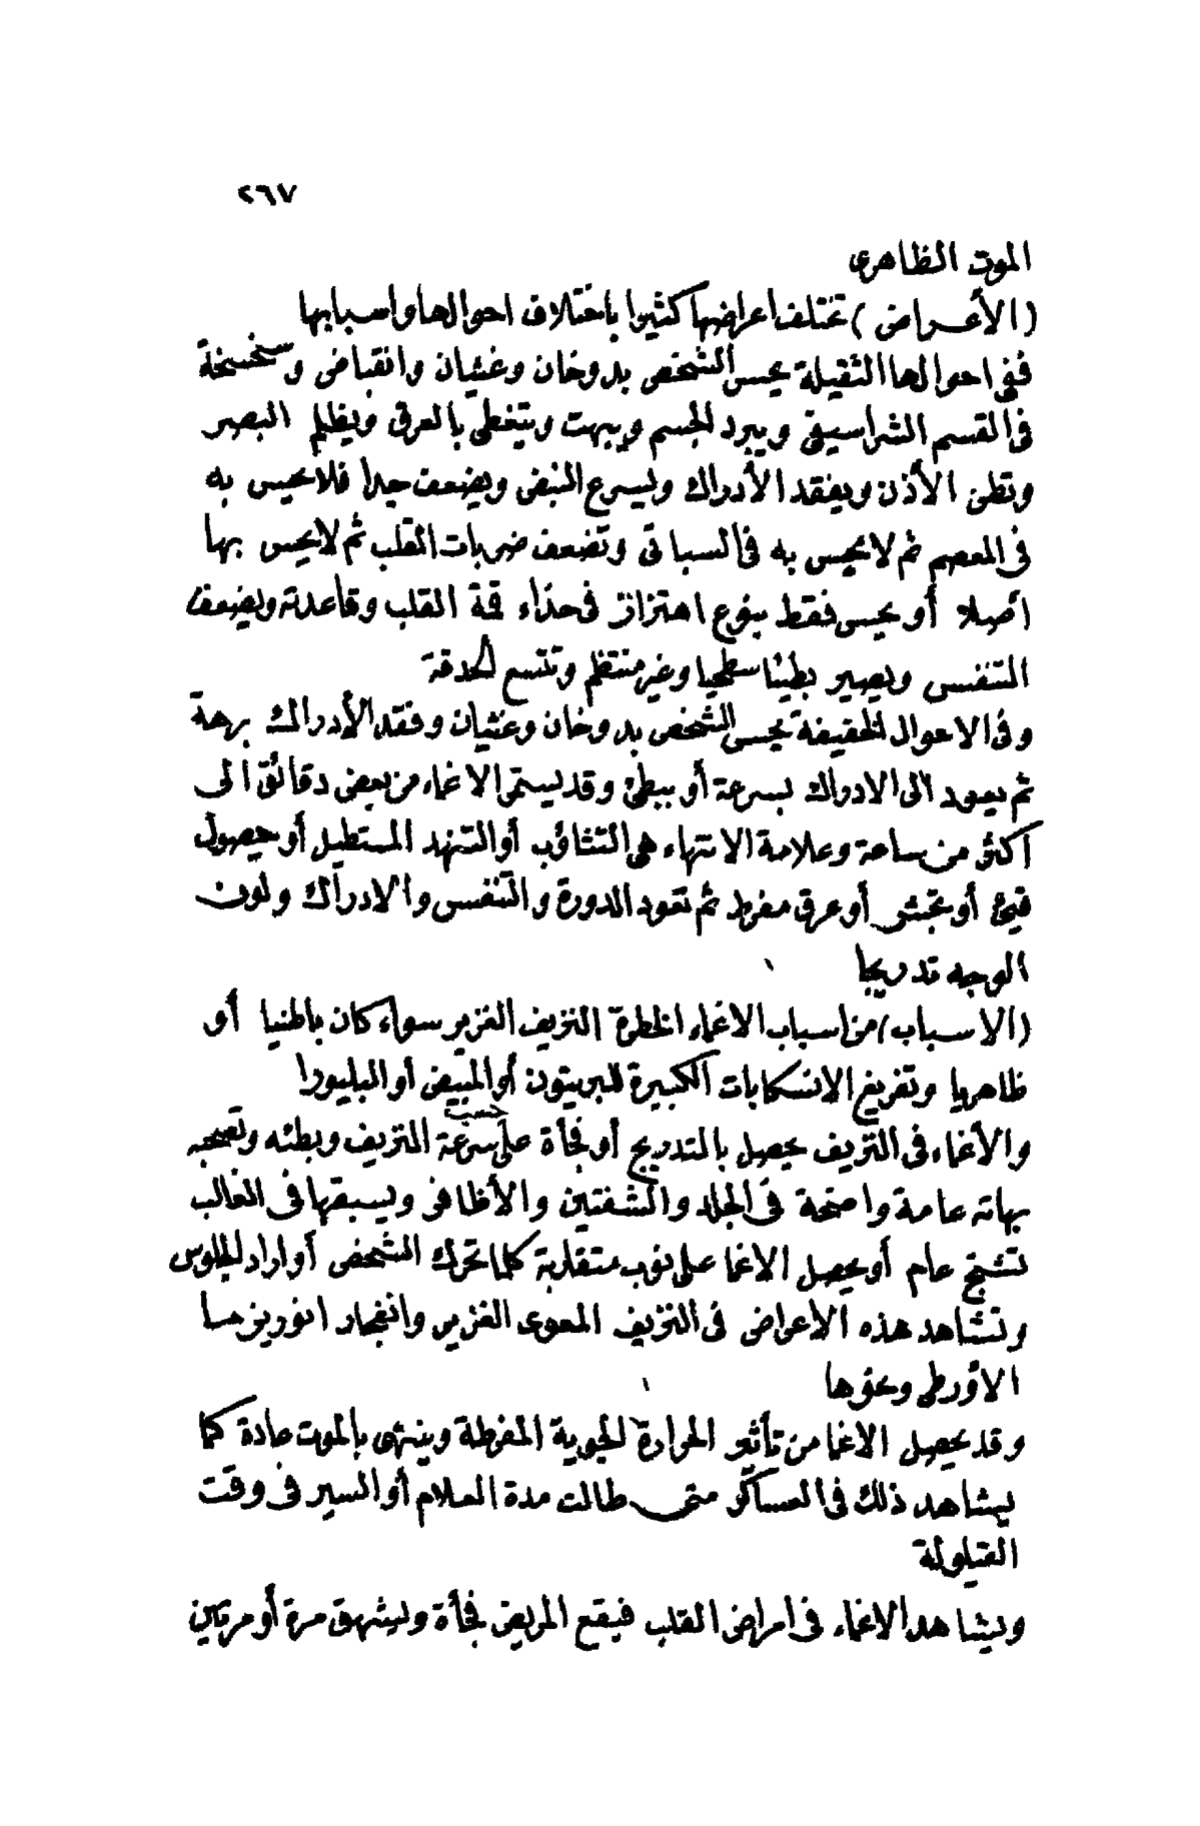 ٢٦٧
الموت الظاهرى
(الأعراض) تختلف اعراضها كثيرا باختلاف احوالها واسبابها
ففى احوالها الثقيلة يحس الشخص بدوخان وغثيان وانقباض وسخسخة
فى القسم الشراسيفى ويبرد الجسم ويبهت ويتغطى بالعرق ويظلم البصر
وتطن الأذن ويفقد الأدراك ويسرع النبض ويضعف جدا فلا يحس به
فى المعصم ثم لا يحس به فى السباتى وتضعف ضربات القلب ثم لا يحس بها
أصلا أو يحس فقط بنوع اهتزاز فى حذاء قمة القلب وقاعدته ويضعف
التنفس ويصير بطيئا سطحيا وغير منتظم وتتسع الحدقة
وفى الاحوال الخفيفة يحس الشخص بدوخان وغثيان وفقد الأدراك برهة
ثم يعود الى الادراك بسرعة أو ببطئ وقد يستمر الاغماء من بعض دقائق الى
أكثر من ساعة وعلامة الانتهاء هى التثاؤب أو التنهد المستطيل أو حصول
قيئ أو تجش أو عرق مفرط ثم تعود الدورة والتنفس والادراك ولون
الوجه تدريجا
(الاسباب) من اسباب الاغماء الخطرة النزيف الغزير سواء كان باطنيا أو
ظاهريا وتفريغ الانسكابات الكبيرة للبريتون أو المبيض أو البليورا
والأغماء فى النزيف يحصل بالتدريج أو فجأة على حسب سرعة النزيف وبطئه وتصحبه
بهاتة عامة واضحة فى الجلد والشفتين والأظافر ويسبقها فى الغالب
تشنج عام أو يحصل الاغما على نوب متقاربة كلما تحرك الشخص أو اراد الجلوس
وتشاهد هذه الاعراض فى النزيف المعوى الغزير وانفجار انورينرما
الأورطى ونحوها
وقد يحصل الاغما من تأثير الحرارة الجوية المفرطة وينتهى بالموت عادة كما
يشاهد ذلك فى العساكر متى طالت مدة العلام أو السير فى وقت
القيلولة
ويشاهد الاغماء فى امراض القلب فيقع المريض فجأة ويشهق مرة أو مرتين